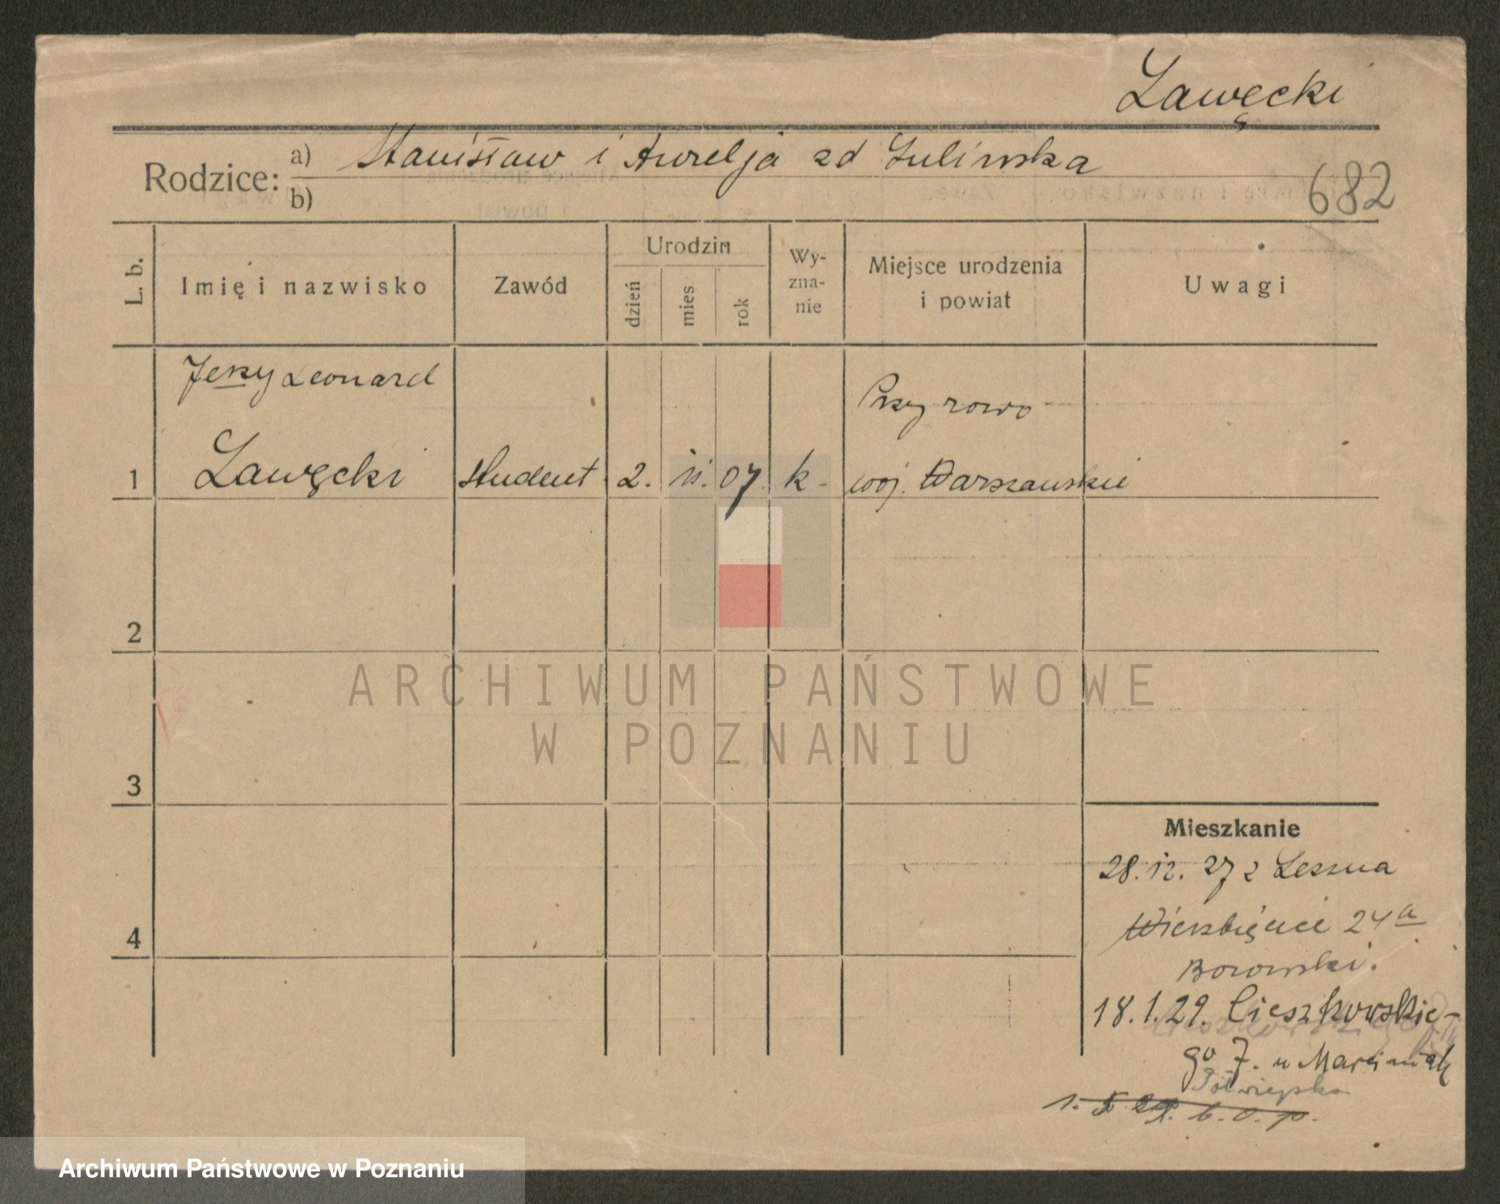 Ławęcki
Rodzice: a) Stanisław i Aurelja zd Sulimska
b)
682
L. b.
Imię i nazwisko
Zawód
Urodzin
dzień
mies
rok
Wy-
zna-
nie
Miejsce urodzenia
i powiat
Uwagi
Jerzy Leonard
Przyrowo
1 Ławęcki student 2. 11. 07. k. woj. Warszawskie
2
3
4
ARCHIWUM PAŃSTWOWE
W POZNANIU
Mieszkanie
28. 12. 27 z Leszna
Wierzbięcice 24a
Borowski.
18.1.29. Cieszkowskie-
go 7. u Marciniak
Półwiejska
1. 5 29. b. o. p.
Archiwum Państwowe w Poznaniu